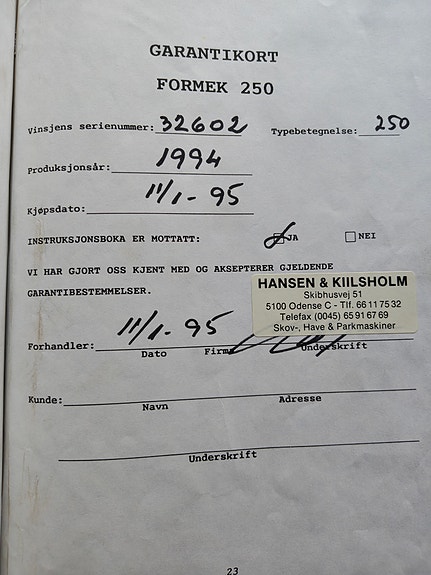 GARANTIKORT
FORMEK 250
Vinsjens serienummer: 32602 Typebetegnelse: 250
Produksjonsår: 1994
Kjøpsdato: 11/1-95
INSTRUKSJONSBOKA ER MOTTATT: JA NEI
VI HAR GJORT OSS KJENT MED OG AKSEPTERER GJELDENDE
GARANTIBESTEMMELSER.
HANSEN & KIILSHOLM
Skibhusvej 51
5100 Odense C - Tlf. 66 11 75 32
Telefax (0045) 65 91 67 69
Skov-, Have & Parkmaskiner
Forhandler: 11/1-95
Dato Firma Underskrift
Kunde:
Navn Adresse
Underskrift
23